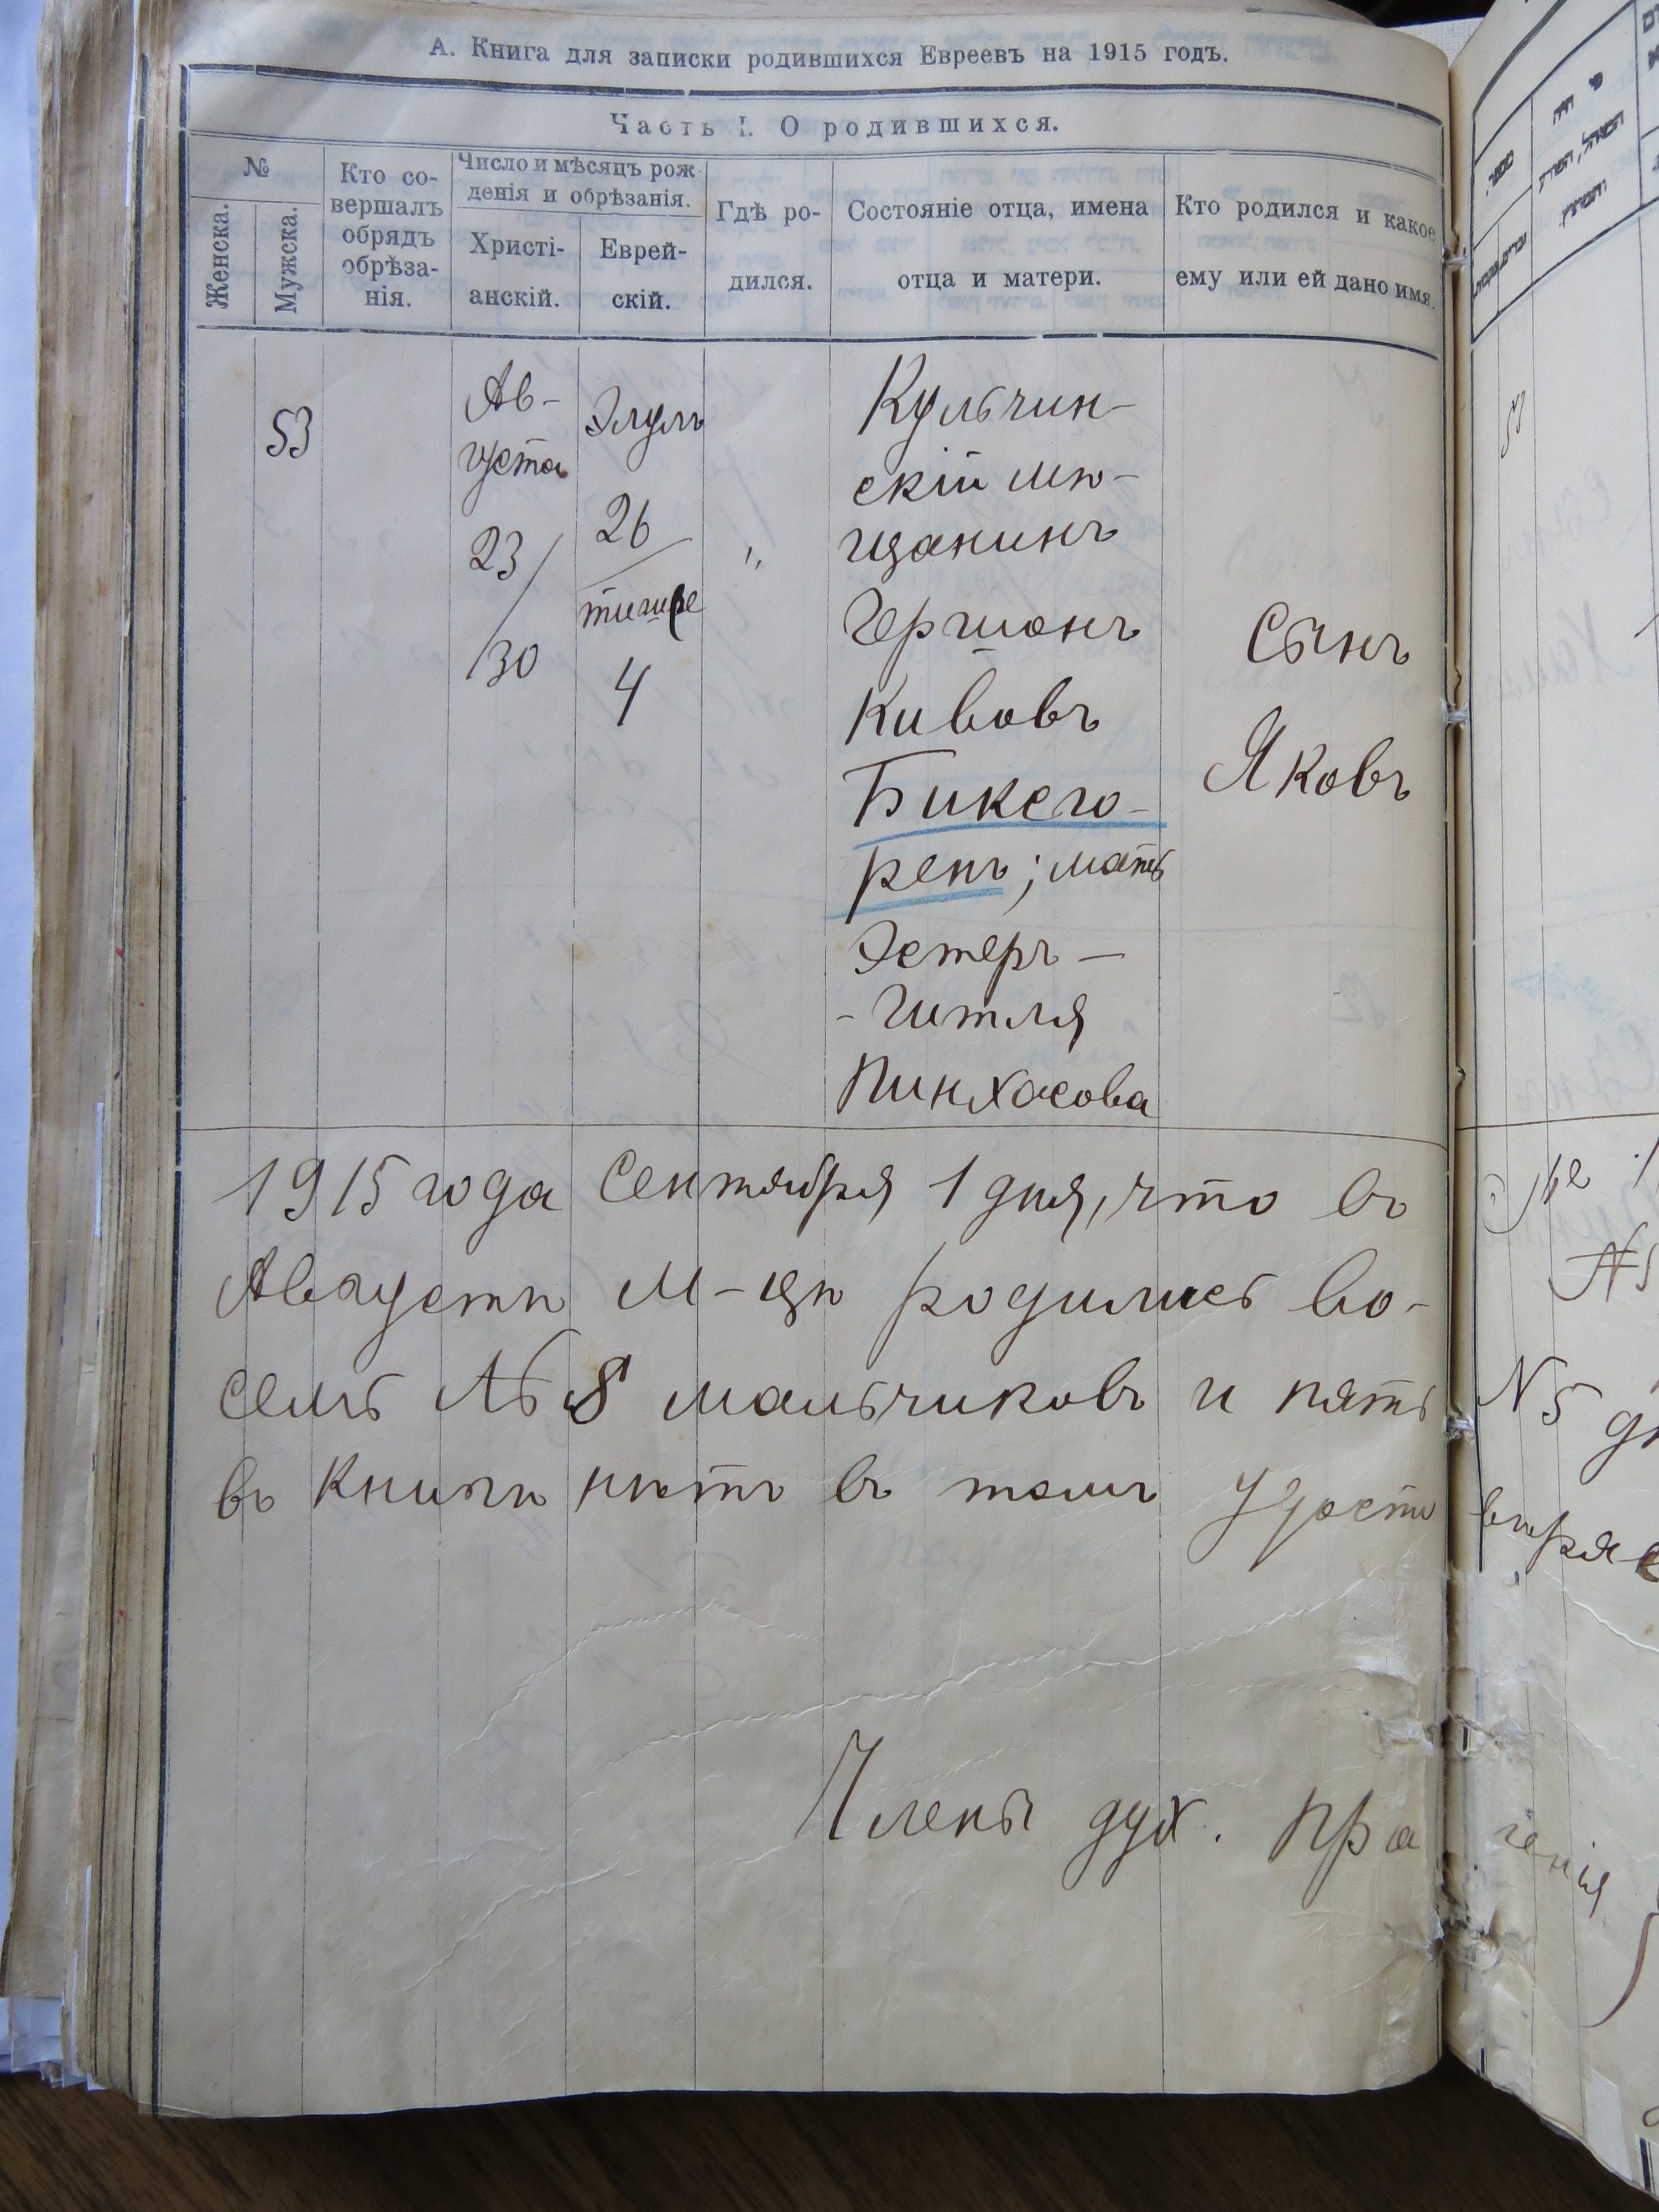 А. Книга для записки родившихся Евреевъ на 1915 годъ.
Часть I. О родившихся.
№
Женска.
Мужска.
Кто со-
вершалъ
обрядъ
обрѣза-
нія.
Число и мѣсяцъ рож
денія и обрѣзанія.
Христі-
анскій.
Еврей-
скій.
Гдѣ ро-
дился.
Состояніе отца, имена
отца и матери.
Кто родился и какое
ему или ей дано имя.
53
Ав-
густа
23/
/30
Элулъ
26
тишре
4
"
Кульчин-
скій мѣ-
щанинъ
Гершонъ
Кивовъ
Бикего-
репъ; мать
Эстеръ-
-Гитля
Пинхасова
Сынъ
Яковъ
1915 года Сентября 1 дня, что въ
Августѣ м-цѣ родились во-
семь 8 мальчиковъ и пять
въ книгѣ нѣтъ въ томъ удосто
вѣряе
Члены дух. Пра
ленія
53
№ 5